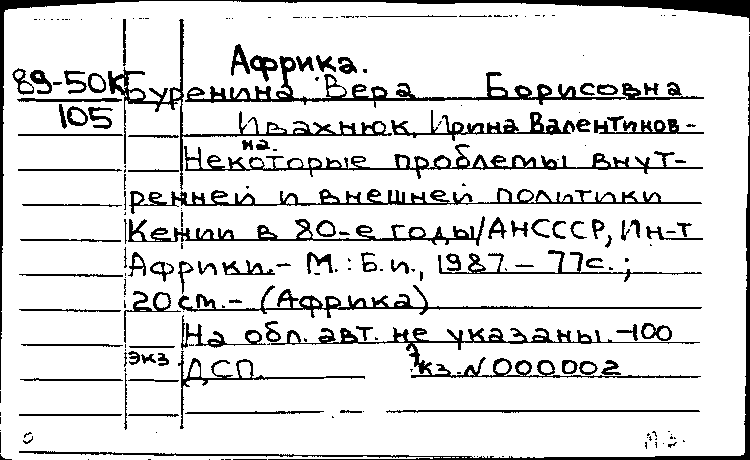 Африка.
89-50К Буренина, Вера Борисовна
105 Ивахнюк, Ирина Валентинов-
на.
Некоторые проблемы внут-
ренней и внешней политики
Кении в 80-е годы/АНСССР, Ин-т
Африки.- М.: Б.и., 1987.- 77с.;
20см.- (Африка)
На обл. авт. не указаны.-100
экз
ДСП. Экз.N000002